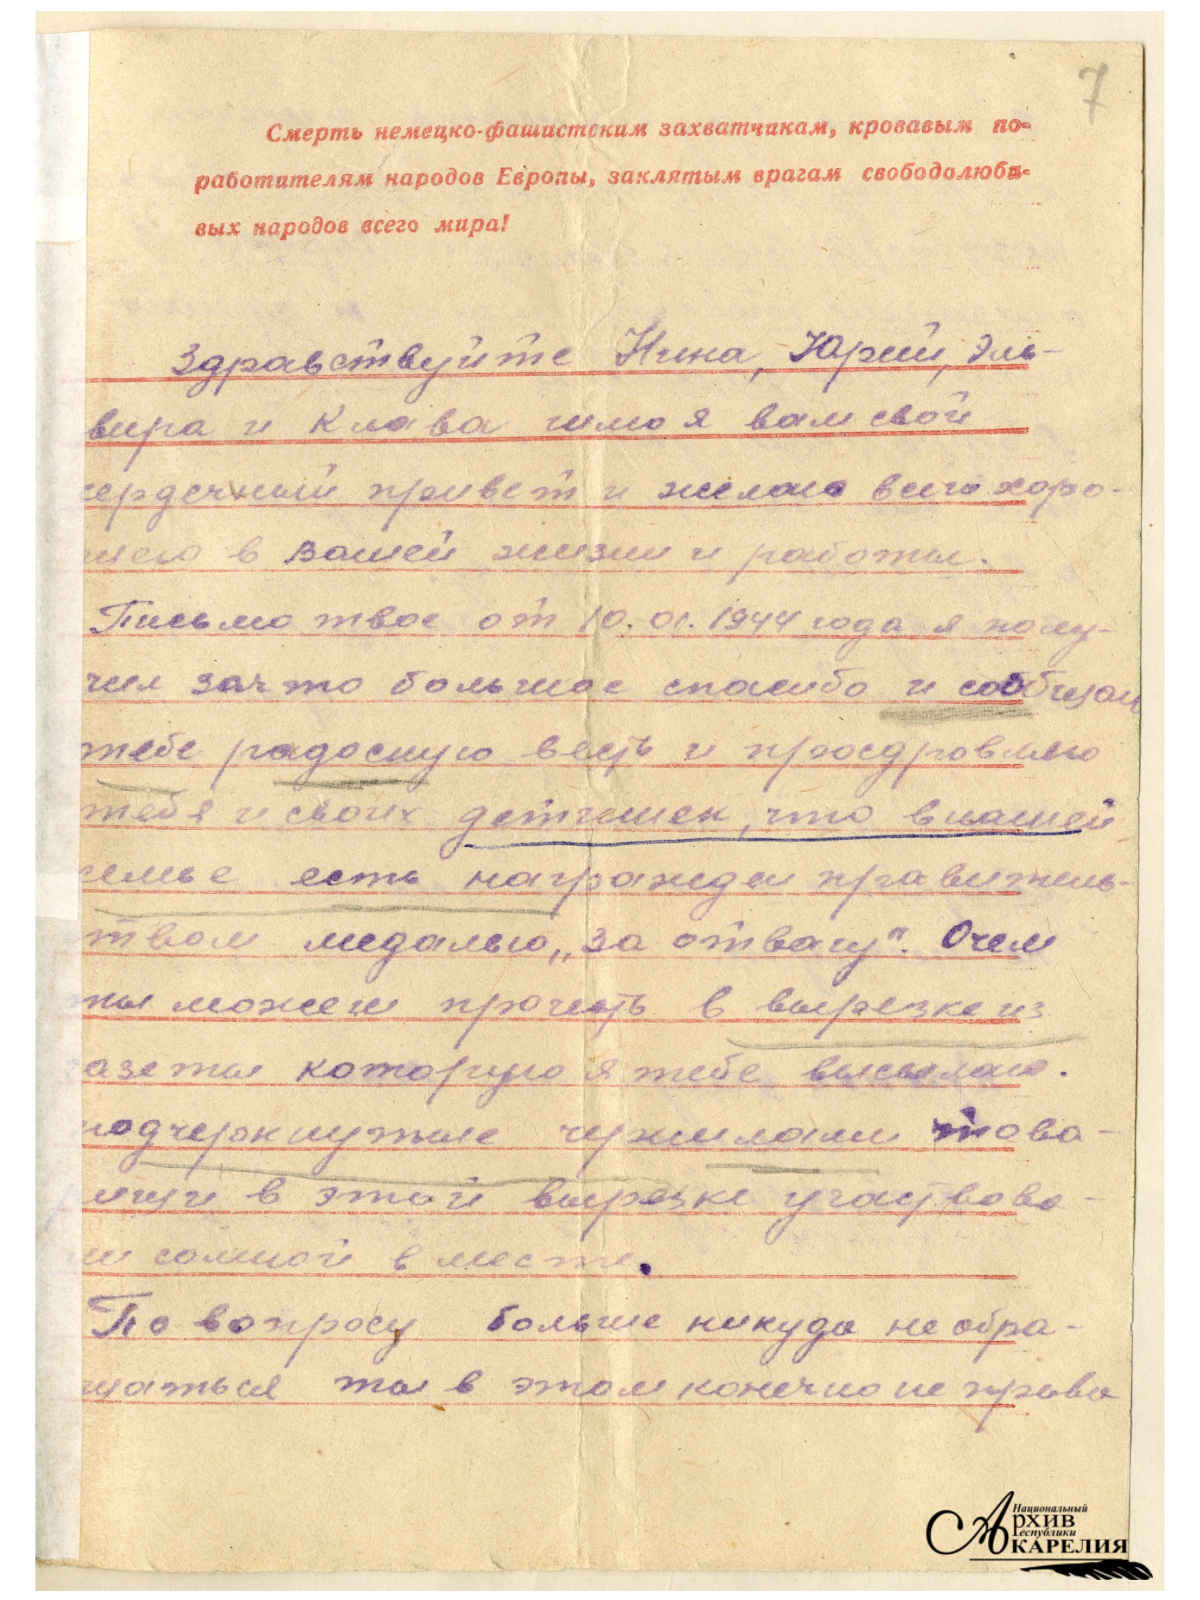 7
Смерть немецко-фашистским захватчикам, кровавым по-
работителям народов Европы, заклятым врагам свободолюби-
вых народов всего мира!
Здравствуйте Нина, Юрий, Эль-
вира и Клава шлю я вам свой
сердечный привет и желаю всего хоро-
шего в вашей жизни и работы.
Письмо твое от 10.01.1944 года я полу-
чил за что большое спасибо и сообщаю
тебе радосную весть и проздровляю
тебя и своих детишек, что в нашей
семье есть награжден правитель-
ством медалью „За отвагу". Очем
ты можеш прочесть в вырезке из
газеты которую я тебе высылаю.
подчеркнутые чернилами това-
рищи в этой вырезке участвова-
ли сомной вместе.
По вопросу больше никуда не обра-
щаться ты в этом конечно не права
Национальный
Архив
Республики
Карелия